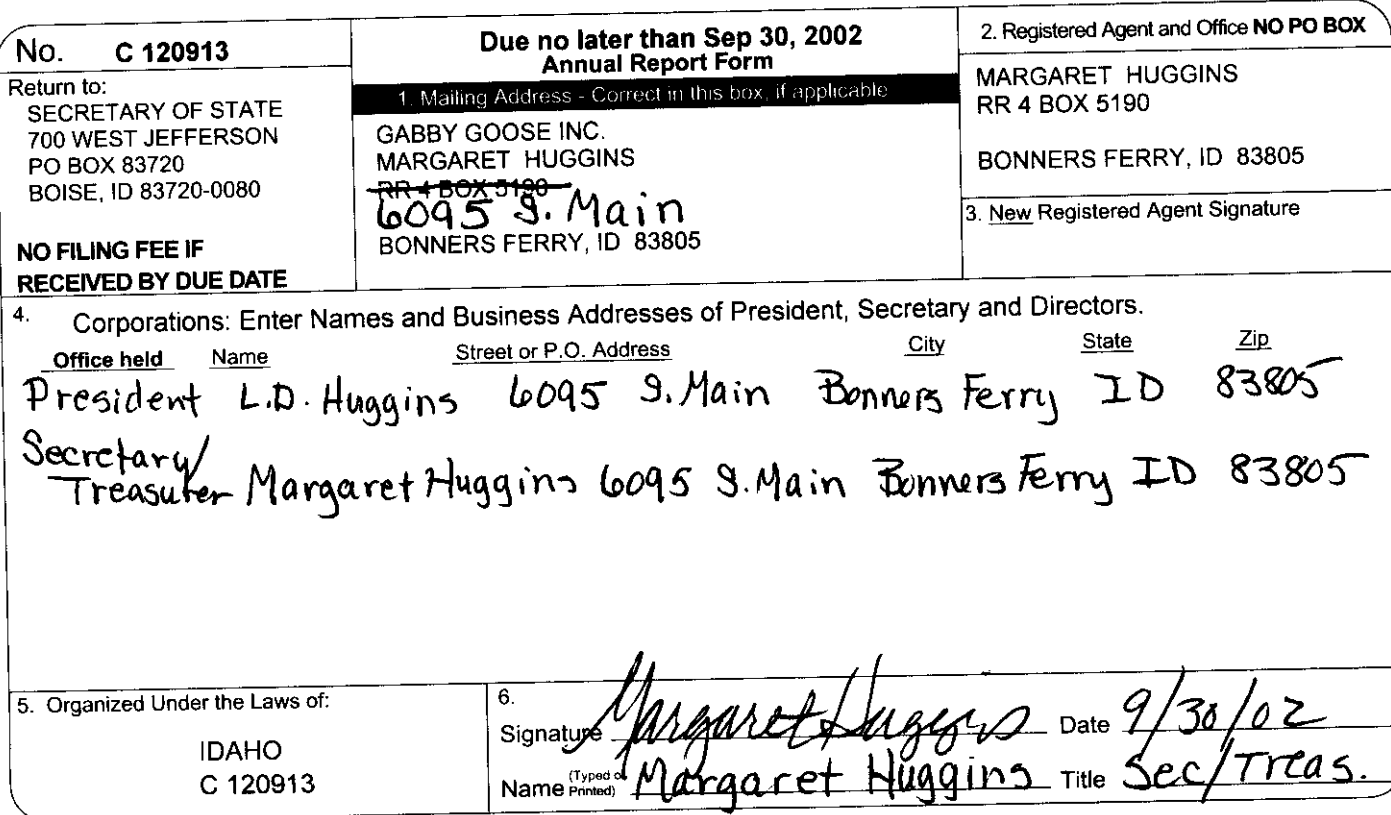 No. C 120913
Return to:
SECRETARY OF STATE
700 WEST JEFFERSON
PO BOX 83720
BOISE, ID 83720-0080
NO FILING FEE IF
RECEIVED BY DUE DATE
Due no later than Sep 30, 2002
Annual Report Form
1. Mailing Address - Correct in this box, if applicable
GABBY GOOSE INC.
MARGARET HUGGINS
RR 4 BOX 5190
6095 S. Main
BONNERS FERRY, ID 83805
2. Registered Agent and Office NO PO BOX
MARGARET HUGGINS
RR 4 BOX 5190
BONNERS FERRY, ID 83805
3. New Registered Agent Signature
4. Corporations: Enter Names and Business Addresses of President, Secretary and Directors.
Office held Name Street or P.O. Address City State Zip
President L.D. Huggins 6095 S. Main Bonners Ferry ID 83805
Secretary/
Treasurer Margaret Huggins 6095 S. Main Bonners Ferry ID 83805
5. Organized Under the Laws of:
IDAHO
C 120913
6.
Signature Margaret Huggins Date 9/30/02
Name (Typed or Printed) Margaret Huggins Title Sec/Treas.